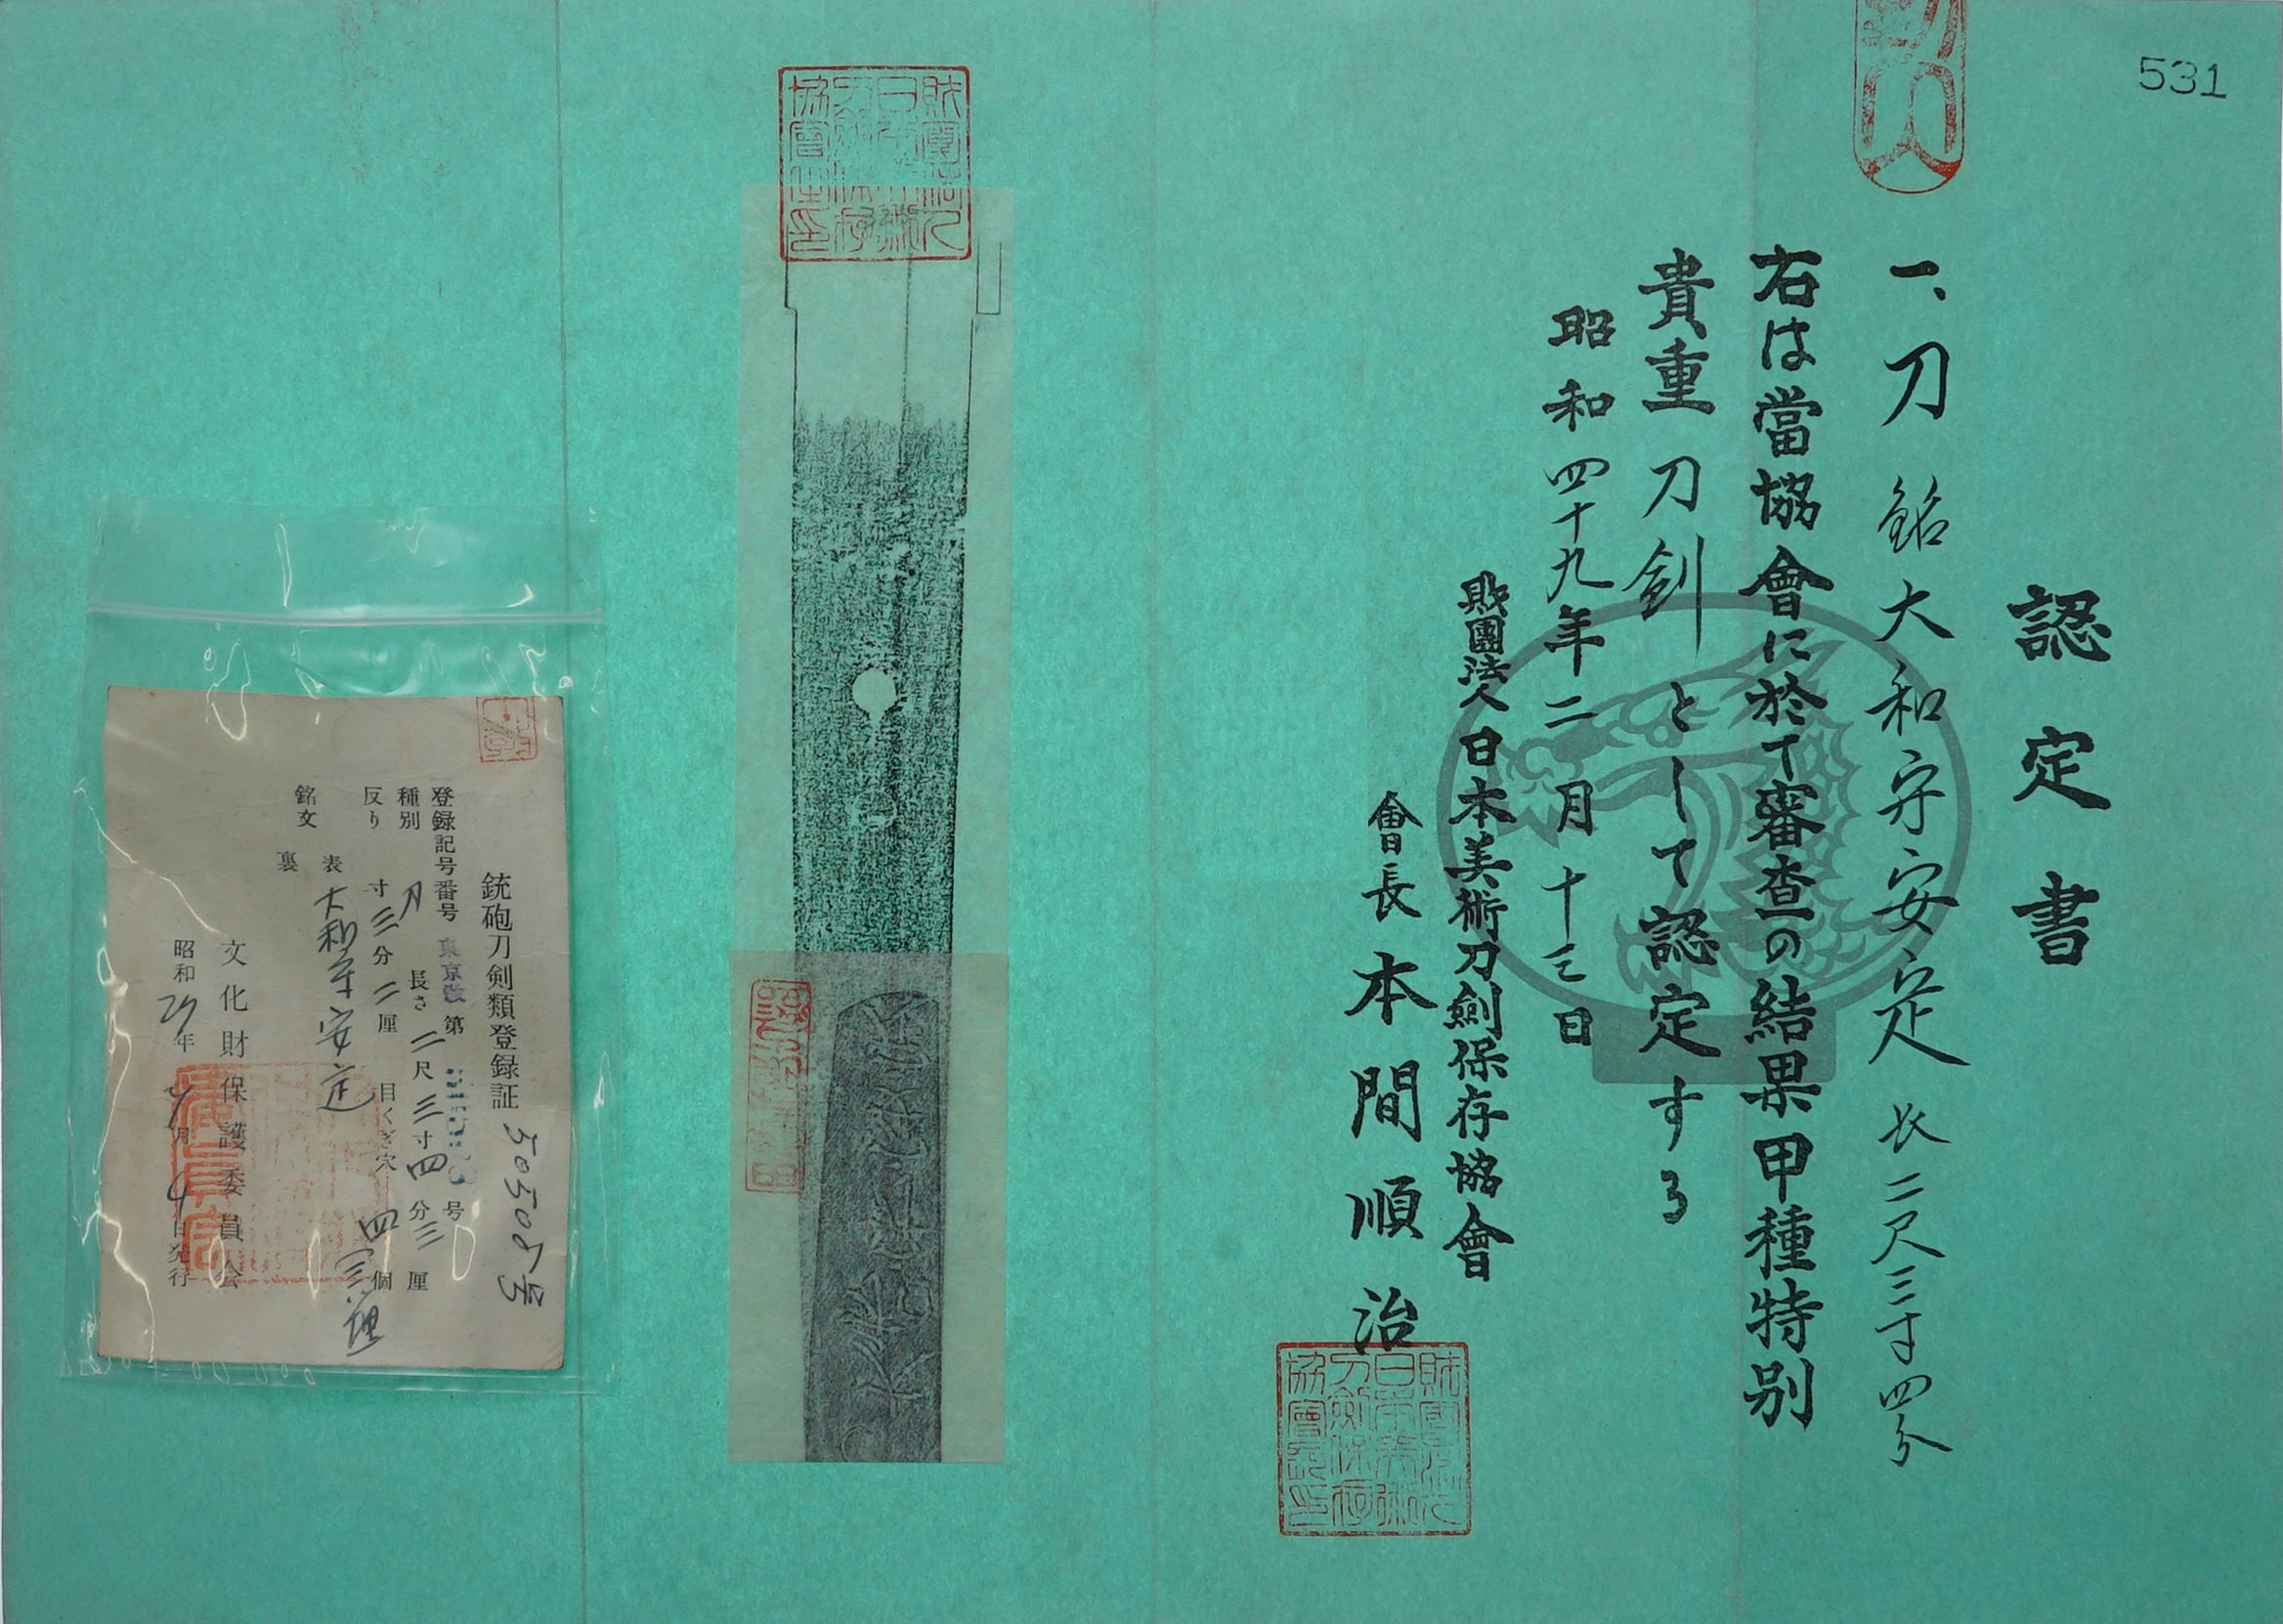 531
認定書
一、刀 銘大和守安定 長二尺三寸四分
右は當協會に於て審査の結果甲種特別
貴重刀剣として認定する
昭和四十九年二月十三日
財團法人日本美術刀劍保存協會
會長 本間順治
銃砲刀剣類登録証
登録記号番号 東京 第 号
種別 刀 長さ 二尺三寸四分三厘
反り 寸三分二厘 目くぎ穴 四個
銘文 表 大和守安定
裏
文化財保護委員会
昭和 年 月 日発行